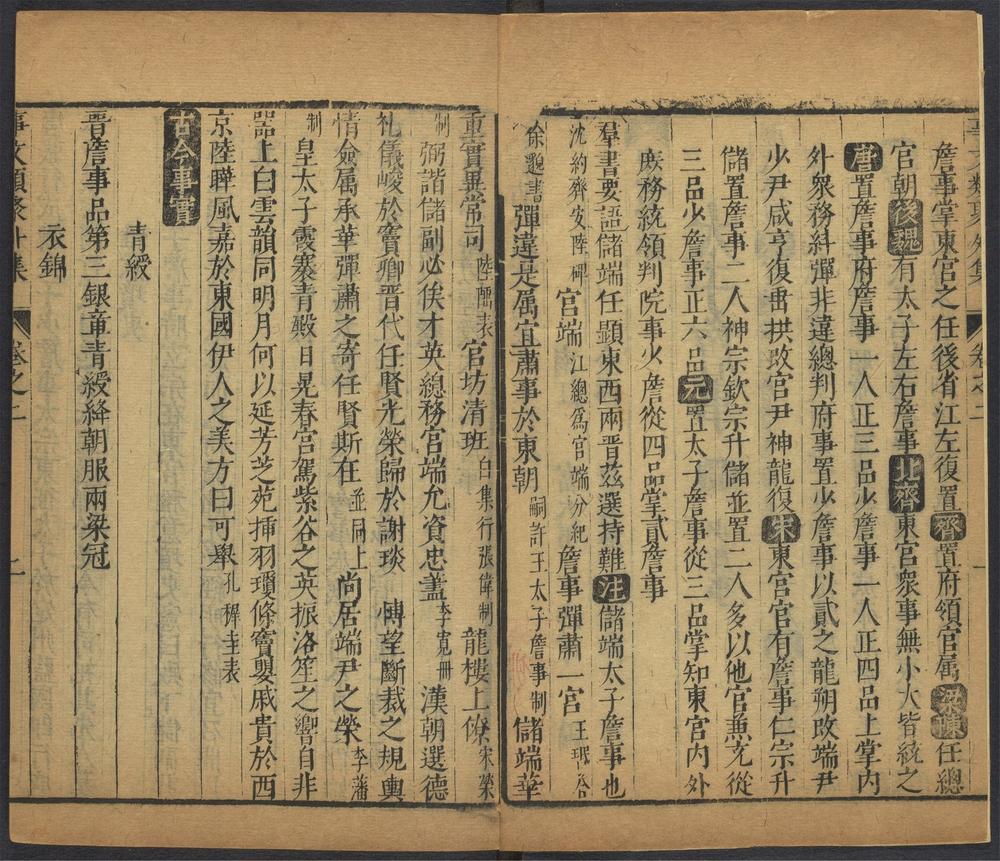 事文類聚外集 卷之二 一
詹事掌東宮之任後省江左復置齊置府領官属梁陳任總
官朝後魏有太子左右詹事北齊東宮衆事無小大皆統之
唐置詹事府詹事一人正三品少詹事一人正四品上掌内
外衆務糾彈非違總判府事置少詹事以貳之龍朔改端尹
少尹咸亨復舊垂拱改宮尹神龍復宋東宮官有詹事仁宗升
儲置詹事二人神宗欽宗升儲並置二人多以他官兼充從
三品少詹事正六品元置太子詹事從三品掌知東宮内外
庶務統領判院事少詹從四品掌貳詹事
羣書要語儲端任顯東西兩晋茲選持難注儲端太子詹事也
沈約齊安陸碑宮端江總爲宮端分紀詹事彈肅一宮王珉答
徐邈書彈違是属宜肅事於東朝嗣許王太子詹事制儲端華
重實異常司陸酳表宮坊清班白集行張偉制龍樓上僚宋榮
制弼諧儲副必俟才英總務宮端允資忠藎李寬冊漢朝選德
礼儀峻於竇卿晋代任賢光榮歸於謝琰 博望斷裁之規輿
情僉属承華彈肅之寄任賢斯在並同上尚居端尹之榮李藩
制皇太子霞褰青殿日晃春宮駕紫谷之英振洛笙之響自非
噐上白雲韻同明月何以延芳芝苑揷羽瓊條竇嬰戚貴於西
京陸瞱風嘉於東國伊人之美方曰可舉孔稺圭表
古今事實
青綬
晋詹事品第三銀章青綬絳朝服兩梁冠
衣錦
事文類聚外集 卷之二 一